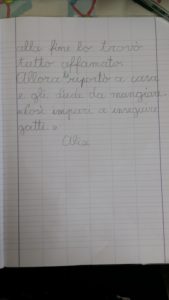 alla fine lo trovò
tutto affamato.
Allora lo riportò a casa
e gli diede da mangiare
«Così impari a inseguire
gatti.»
Alix